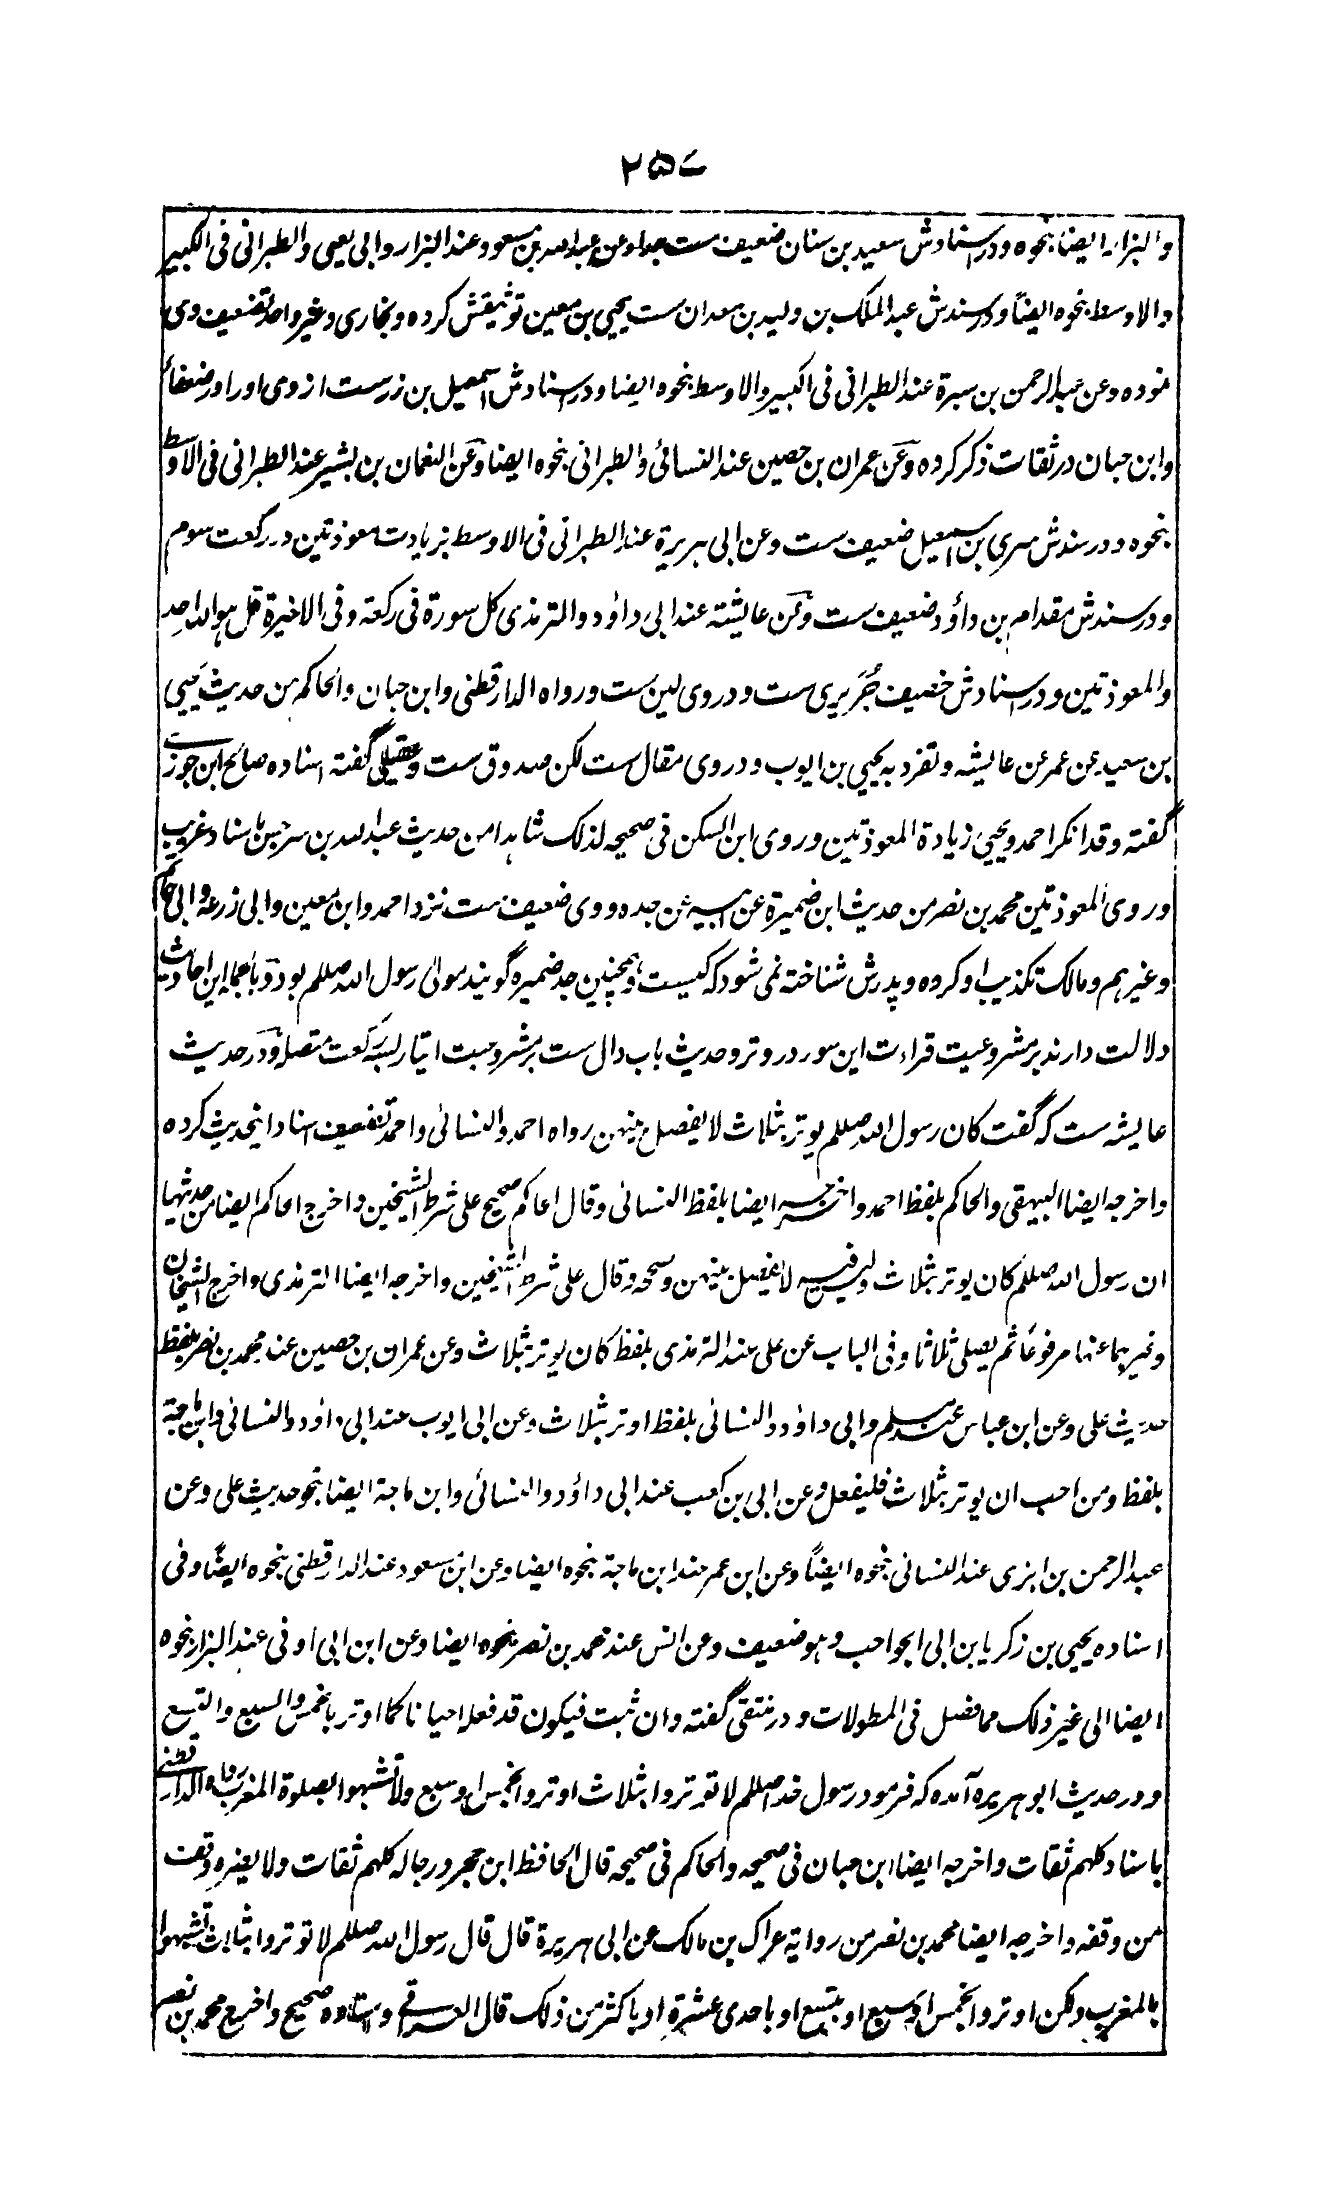 ۲۵۷
والبزار ایضا بنحوه ودر اسنادش سعید بن سنان ضعیف ست جدا وعن عبد الله بن مسعود عند البزار وابی یعلی والطبرانی فی الکبیر
والاوسط بنحوه ایضاً ودر سندش عبد الملک بن ولید بن معدان ست یحیی بن معین توثیقش کرده وبخاری وغیر واحد تضعیف وی
نموده وعن عبد الرحمن بن سبرة عند الطبرانی فی الکبیر والاوسط بنحوه ایضا ودر اسنادش اسمعیل بن زرست ازدی اورا در ضعفا
وابن حبان در ثقات ذکر کرده وعن عمران بن حصین عند النسائی والطبرانی بنحوه ایضا وعن النعمان بن بشیر عند الطبرانی فی الاوسط
بنحوه ودر سندش سری بن اسمعیل ضعیف ست وعن ابی هریرة عند الطبرانی فی الاوسط بزیادت معوذتین در رکعت سوم
ودر سندش مقدام بن داؤد ضعیف ست وعن عایشته عند ابی داؤد والترمذی کل سورة فی رکعة وفی الاخیرة قل هو الله احد
والمعوذتین ودر اسنادش خصیف جُزَیری ست ودر وی لین ست ورواه الدارقطنی وابن حبان والحاکم من حدیث یحیی
بن سعید عن عمر عن عایشه وتفرد به یحیی بن ایوب ودر وی مقال ست لکن صدوق ست وعقیلی گفته اسناده صالح ابن جوزی
گفته وقد انکر احمد ویحیی زیادة المعوذتین وروی ابن السکن فی صحیحه لذلک شاهدا من حدیث عبد الله بن سرجس باسناد غریب
وروی المعوذتین محمد بن نصر من حدیث ابن ضمیرة عن ابیه عن جده ووی ضعیف ست نزد احمد وابن معین وابی زرعه وابی حاتم
وغیرهم ومالک تکذیب او کرده وپدرش شناخته نمی شود که کیست وهمچنین جد ضمیره گویند مولی رسول الله صللم بود وبالجمله این احادیث
دلالت دارند بر مشروعیت قراءت این سور در وتر وحدیث باب دال ست بر مشروعیت ایتار بسه رکعت متصله ودر حدیث
عایشه ست که گفت کان رسول الله صللم یوتر بثلاث لا یفصل بینهن رواه احمد والنسائی واحمد تضعیف اسناد اینحدیث کرده
واخرجه ایضا البیهقی والحاکم بلفظ احمد واخرجه ایضا بلفظ النسائی وقال الحاکم صحیح علی شرط الشیخین واخرج الحاکم ایضا من حدیثها
ان رسول الله صللم کان یوتر بثلاث ولیس فیه لا یفصل بینهن وصححه وقال علی شرط الشیخین واخرجه ایضا الترمذی واخرج الشیخان
وغیرهما عنها مرفوعاً ثم یصلی ثلاثا وفی الباب عن علی عند الترمذی بلفظ کان یوتر بثلاث وعن عمران بن حصین عند محمد بن نصر بلفظ
حدیث علی وعن ابن عباس عند مسلم وابی داؤد والنسائی بلفظ اوتر بثلاث وعن ابی ایوب عند ابی داؤد والنسائی وابن ماجة
بلفظ ومن احب ان یوتر بثلاث فلیفعل وعن ابی بن کعب عند ابی داؤد والنسائی وابن ماجة ایضا بنحو حدیث علی وعن
عبد الرحمن بن ابزی عند النسائی بنحوه ایضاً وعن ابن عمر عند ابن ماجة بنحوه ایضا وعن ابن مسعود عند الدارقطنی بنحوه ایضًا وفی
اسناده یحیی بن زکریا بن ابی الحواجب وهو ضعیف وعن انس عند محمد بن نصر بنحوه ایضا وعن ابن ابی اوفی عند البزار بنحوه
ایضا الی غیر ذلک مما فصل فی المطولات ودر منتقی گفته وان ثبت فیکون قد فعله احیانا کما اوتر بالخمس والسبع والتسع
ودر حدیث ابو هریره آمده که فرمود رسول خدا صللم لا توتروا بثلاث اوتروا بخمس او سبع ولا تشبهوا بصلوة المغرب رواه الدارقطنی
باسناد کلهم ثقات واخرجه ایضا ابن حبان فی صحیحه والحاکم فی صحیحه قال الحافظ ابن حجر ورجاله کلهم ثقات ولا یضره وقف
من وقفه واخرجه ایضا محمد بن نصر من روایة عراک بن مالک عن ابی هریرة قال قال رسول الله صللم لا توتروا بثلاث تشبهوا
بالمغرب ولکن اوتروا بخمس او بسبع او بتسع او باحدی عشرة او باکثر من ذلک قال العراقی واسناده صحیح واخرج محمد بن نصر